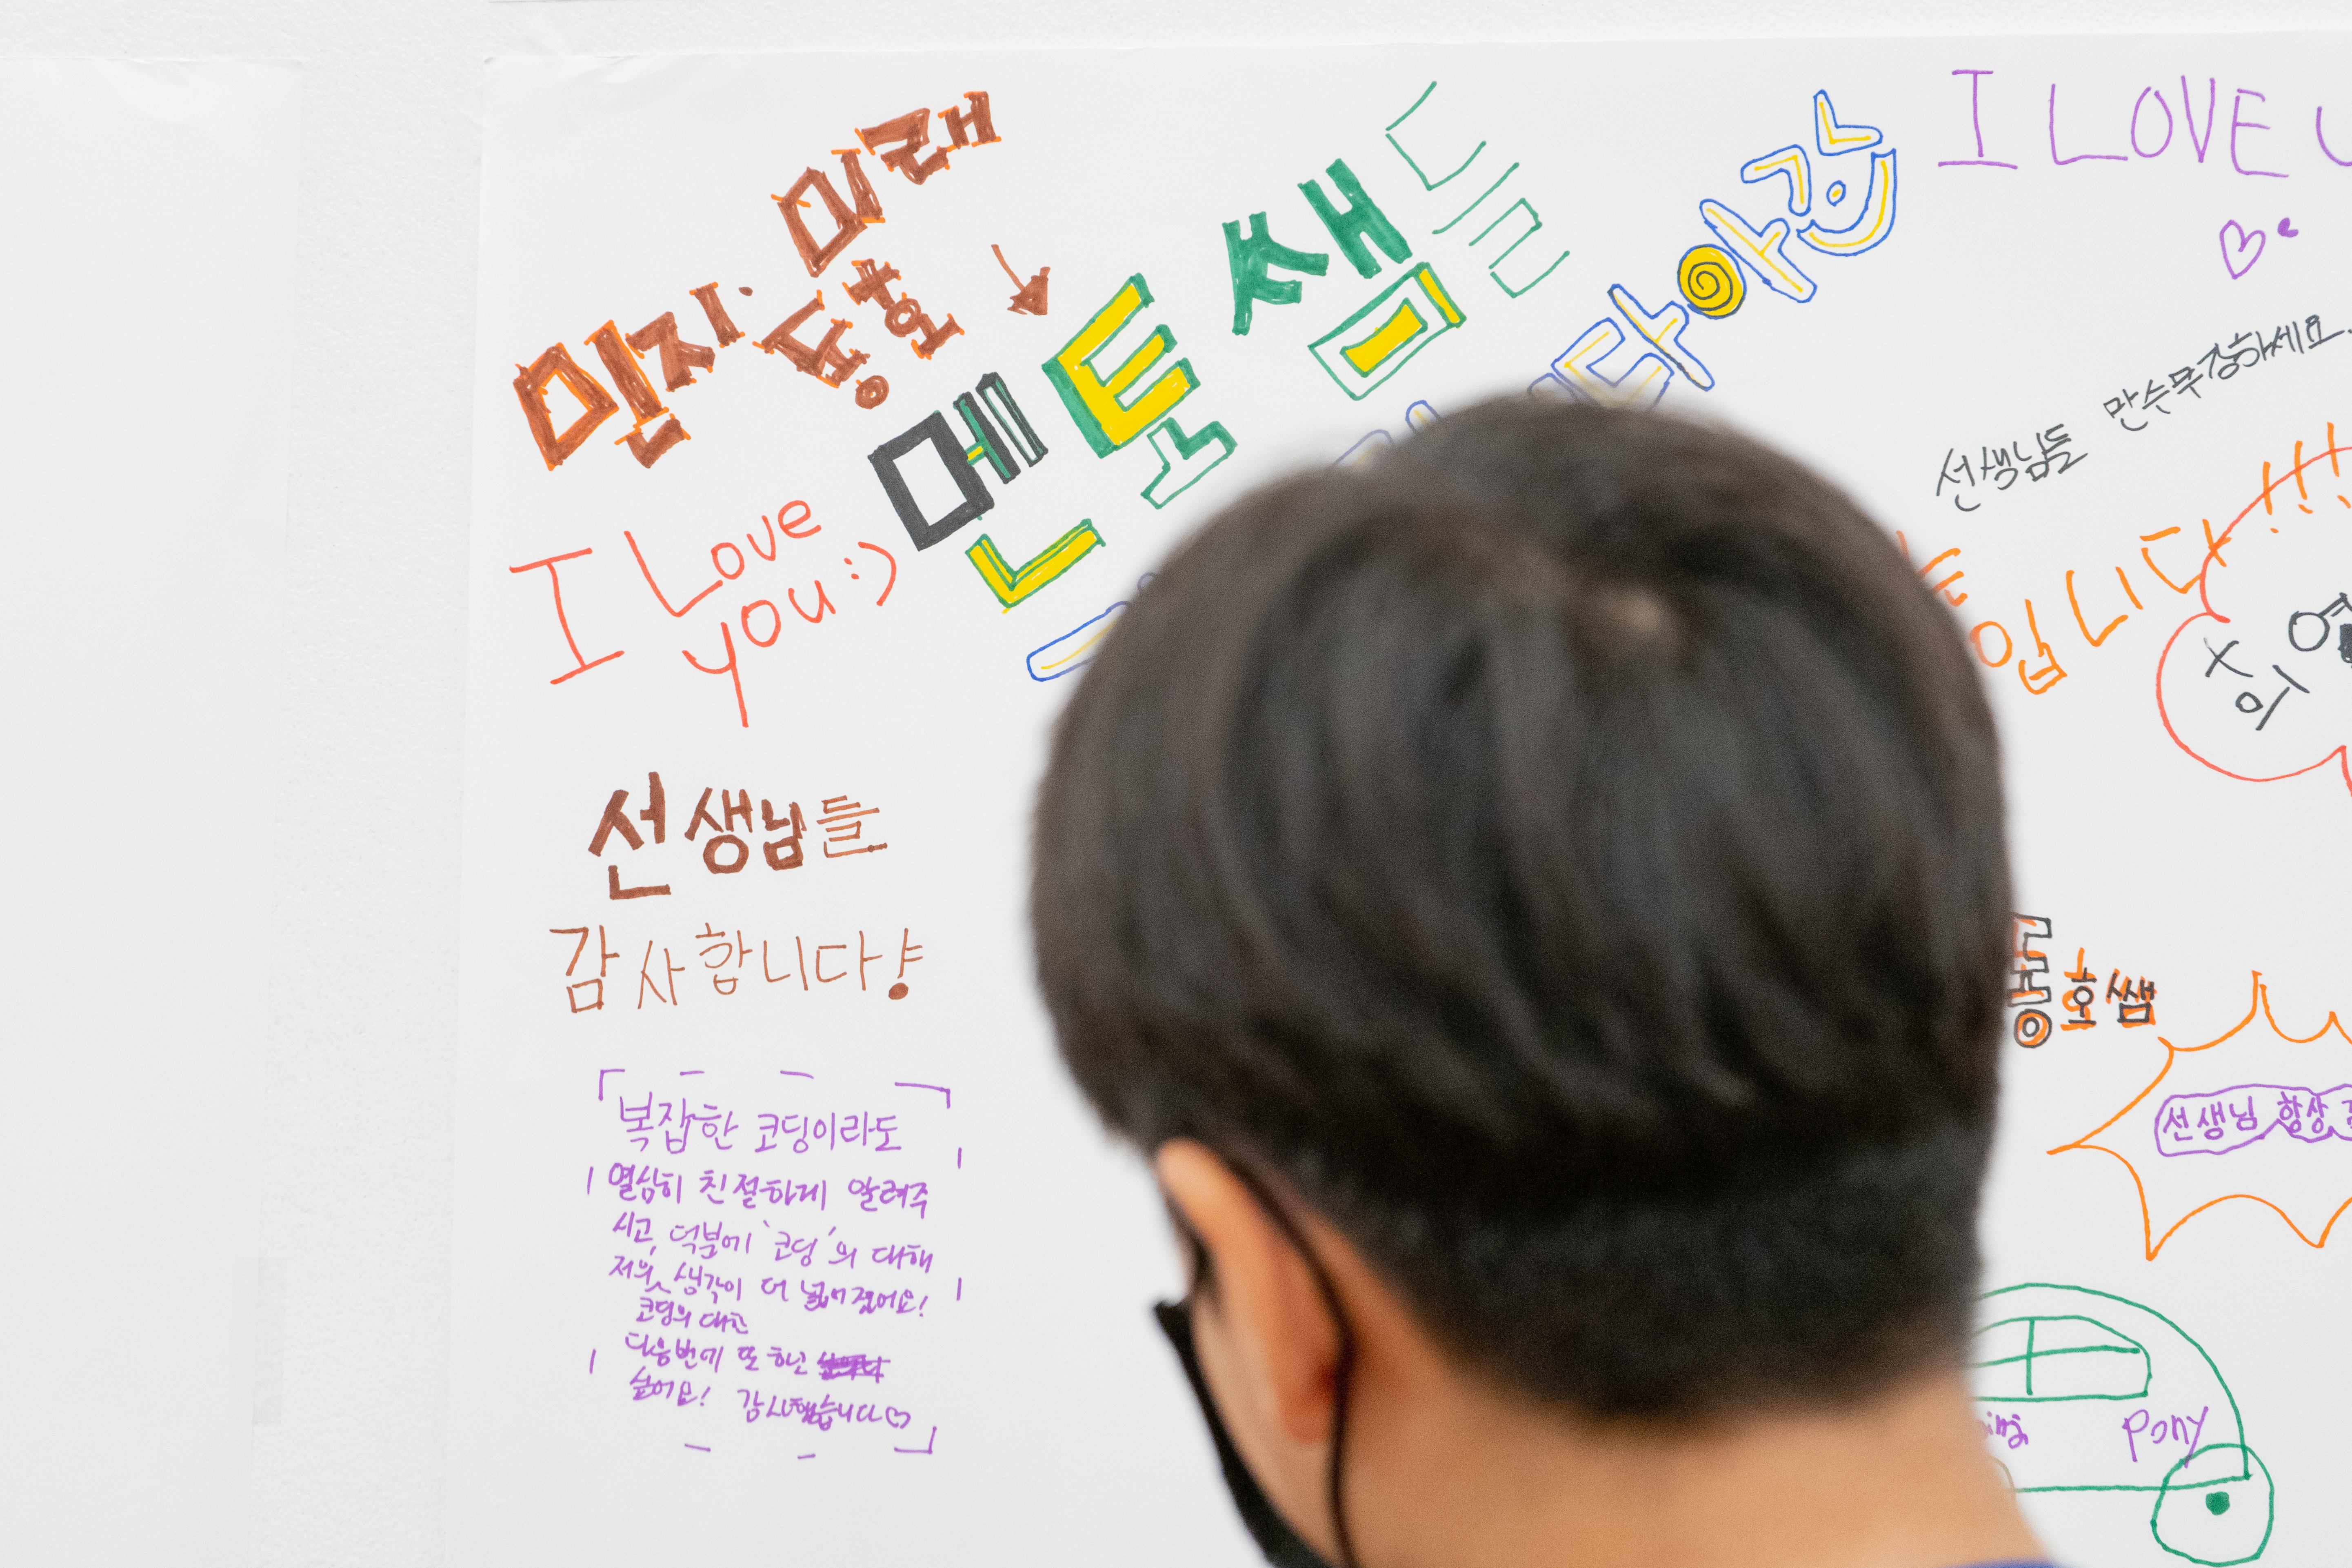 민지· 미래
동호
멘토쌤들
I LOVE U
I Love
you :)
선생님들 만수무강하세요.
입니다!!!
선생님들
감사합니다양
동호쌤
선생님 항상
복잡한 코딩이라도
열심히 친절하게 알려주
시고, 덕분에 '코딩'의 대해
저의 생각이 더 넓어졌어요!
코딩의 대한
다음번에 또 하고
싶어요! 감사했습니다♡
Pony